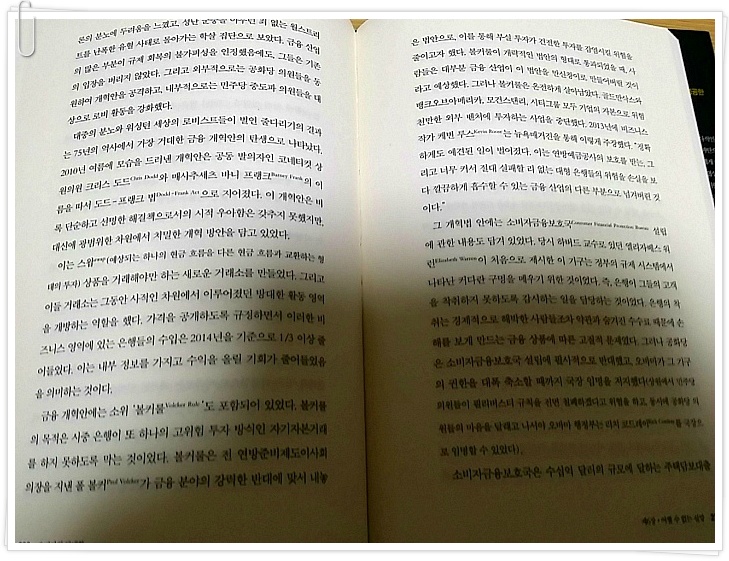 론의 분노에 두려움을 느꼈고, 성난 군중을 아무런 죄 없는 월스트리
트를 난폭한 유혈 사태로 몰아가는 학살 집단으로 보았다. 금융 산업
의 많은 부분이 규제 회복의 불가피성을 인정했음에도, 그들은 기존
의 입장을 버리지 않았다. 그리고 외부적으로는 공화당 의원들을 동
원하여 개혁안을 공격하고, 내부적으로는 민주당 중도파 의원들을 대
상으로 로비 활동을 강화했다.
대중의 분노와 워싱턴 세상의 로비스트들이 벌인 줄다리기의 결과
는 75년의 역사에서 가장 거대한 금융 개혁안의 탄생으로 나타났다.
2010년 여름에 모습을 드러낸 개혁안은 공동 발의자인 코네티컷 상
원의원 크리스 도드Chris Dodd와 매사추세츠 바니 프랭크Barney Frank의 이
름을 따서 도드-프랭크 법Dodd-Frank Act으로 지어졌다. 이 개혁안은 비
록 단순하고 선명한 해결책으로서의 시적 우아함은 갖추지 못했지만,
대신에 광범위한 차원에서 치밀한 개혁 방안을 담고 있었다.
이는 스왑swap(예상되는 하나의 현금 흐름을 다른 현금 흐름과 교환하는 형
태의 투자) 상품을 거래해야만 하는 새로운 거래소를 만들었다. 그리고
이들 거래소는 그동안 사적인 차원에서 이루어졌던 방대한 활동 영역
을 개방하는 역할을 했다. 가격을 공개하도록 규정하면서 이러한 비
즈니스 영역에 있는 은행들의 수입은 2014년을 기준으로 1/3 이상 줄
어들었다. 이는 내부 정보를 가지고 수익을 올릴 기회가 줄어들었음
을 의미하는 것이다.
금융 개혁안에는 소위 '볼커룰Volcker Rule'도 포함되어 있었다. 볼커룰
의 목적은 시중 은행이 또 하나의 고위험 투자 방식인 자기자본거래
를 하지 못하도록 막는 것이었다. 볼커룰은 전 연방준비제도이사회
의장을 지낸 폴 볼커Paul Volcker가 금융 분야의 강력한 반대에 맞서 내놓
은 법안으로, 이를 통해 부실 투자가 건전한 투자를 감염시킬 위험을
줄이고자 했다. 볼커룰이 개략적인 법안의 형태로 통과되었을 때, 사
람들은 대부분 금융 산업이 이 법안을 만신창이로 만들어버릴 것이
라고 예상했다. 그러나 볼커룰은 온전하게 살아남았다. 골드만삭스와
뱅크오브아메리카, 모건스탠리, 시티그룹 모두 기업의 자본으로 위험
천만한 외부 벤처에 투자하는 사업을 중단했다. 2013년에 비즈니스
작가 케빈 루스Kevin Roose는 뉴욕매거진을 통해 이렇게 주장했다. "정확
하게도 예견된 일이 벌어졌다. 이는 연방예금공사의 보호를 받는, 그
리고 너무 커서 절대 실패할 리 없는 대형 은행들의 위험을 손실을 보
다 깔끔하게 흡수할 수 있는 금융 산업의 다른 부분으로 넘겨버린 것
이다."
그 개혁법 안에는 소비자금융보호국Consumer Financial Protection Bureau 설립
에 관한 내용도 담겨 있었다. 당시 하버드 교수로 있던 엘리자베스 워
런Elizabeth Warren이 처음으로 제시한 이 기구는 정부의 규제 시스템에서
나타난 커다란 구멍을 메우기 위한 것이었다. 즉, 은행이 그들의 고객
을 착취하지 못하도록 감시하는 일을 담당하는 것이었다. 은행의 착
취는 경제적으로 해박한 사람들조차 약관과 숨겨진 수수료 때문에 손
해를 보게 만드는 금융 상품에 따른 고질적 문제였다. 그러나 공화당
은 소비자금융보호국 설립에 필사적으로 반대했고, 오바마가 그 기구
의 권한을 대폭 축소할 때까지 국장 임명을 저지했다(상원에서 민주당
의원들이 필리버스터 규칙을 전면 철폐하겠다고 위협을 하고, 동시에 공화당 의
원들의 마음을 달래고 나서야 오바마 행정부는 리처 코드레이Rich Cordray를 국장으
로 임명할 수 있었다).
소비자금융보호국은 수십억 달러의 규모에 달하는 주택담보대출
제5장 • 어쩔 수 없는 실망